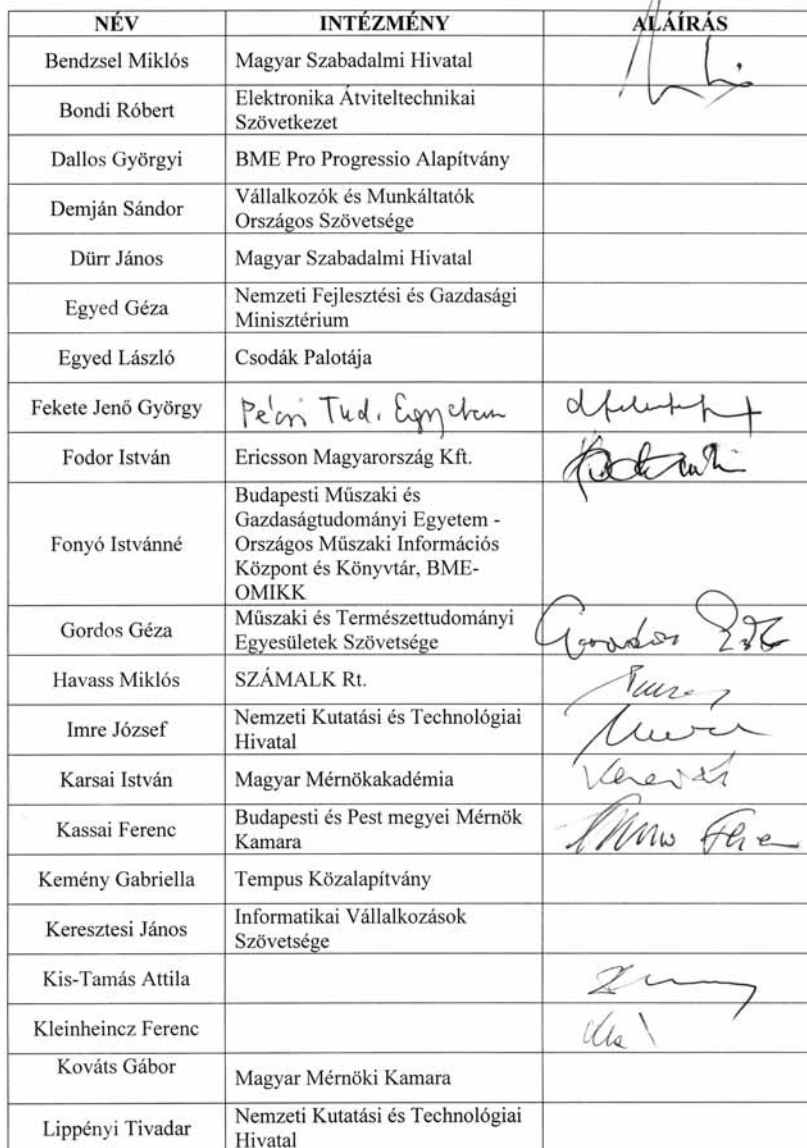 NÉV INTÉZMÉNY ALÁÍRÁS
Bendzsel Miklós Magyar Szabadalmi Hivatal
Bondi Róbert Elektronika Átviteltechnikai
Szövetkezet
Dallos Györgyi BME Pro Progressio Alapítvány
Demján Sándor Vállalkozók és Munkáltatók
Országos Szövetsége
Dürr János Magyar Szabadalmi Hivatal
Egyed Géza Nemzeti Fejlesztési és Gazdasági
Minisztérium
Egyed László Csodák Palotája
Fekete Jenő György Pécsi Tud. Egyetem
Fodor István Ericsson Magyarország Kft.
Fonyó Istvánné Budapesti Műszaki és
Gazdaságtudományi Egyetem -
Országos Műszaki Információs
Központ és Könyvtár, BME-
OMIKK
Gordos Géza Műszaki és Természettudományi
Egyesületek Szövetsége
Havass Miklós SZÁMALK Rt.
Imre József Nemzeti Kutatási és Technológiai
Hivatal
Karsai István Magyar Mérnökakadémia
Kassai Ferenc Budapesti és Pest megyei Mérnök
Kamara
Kemény Gabriella Tempus Közalapítvány
Keresztesi János Informatikai Vállalkozások
Szövetsége
Kis-Tamás Attila
Kleinheincz Ferenc
Kováts Gábor Magyar Mérnöki Kamara
Lippényi Tivadar Nemzeti Kutatási és Technológiai
Hivatal